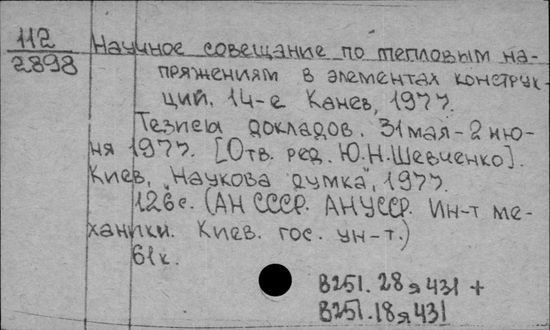 112
2898
Научное совещание по тепловым на-
пряжениям в элементах конструк-
ций. 14-е Канев, 1977.
Тезисы докладов. 31 мая-2 ию-
ня 1977. [Отв. ред. Ю.Н.Шевченко].
Киев, "Наукова думка", 1977.
126с. (АН СССР. АН УССР. Ин-т ме-
ханики. Киев. гос. ун-т.)
61к.
В251.28я431 +
В251.18я431